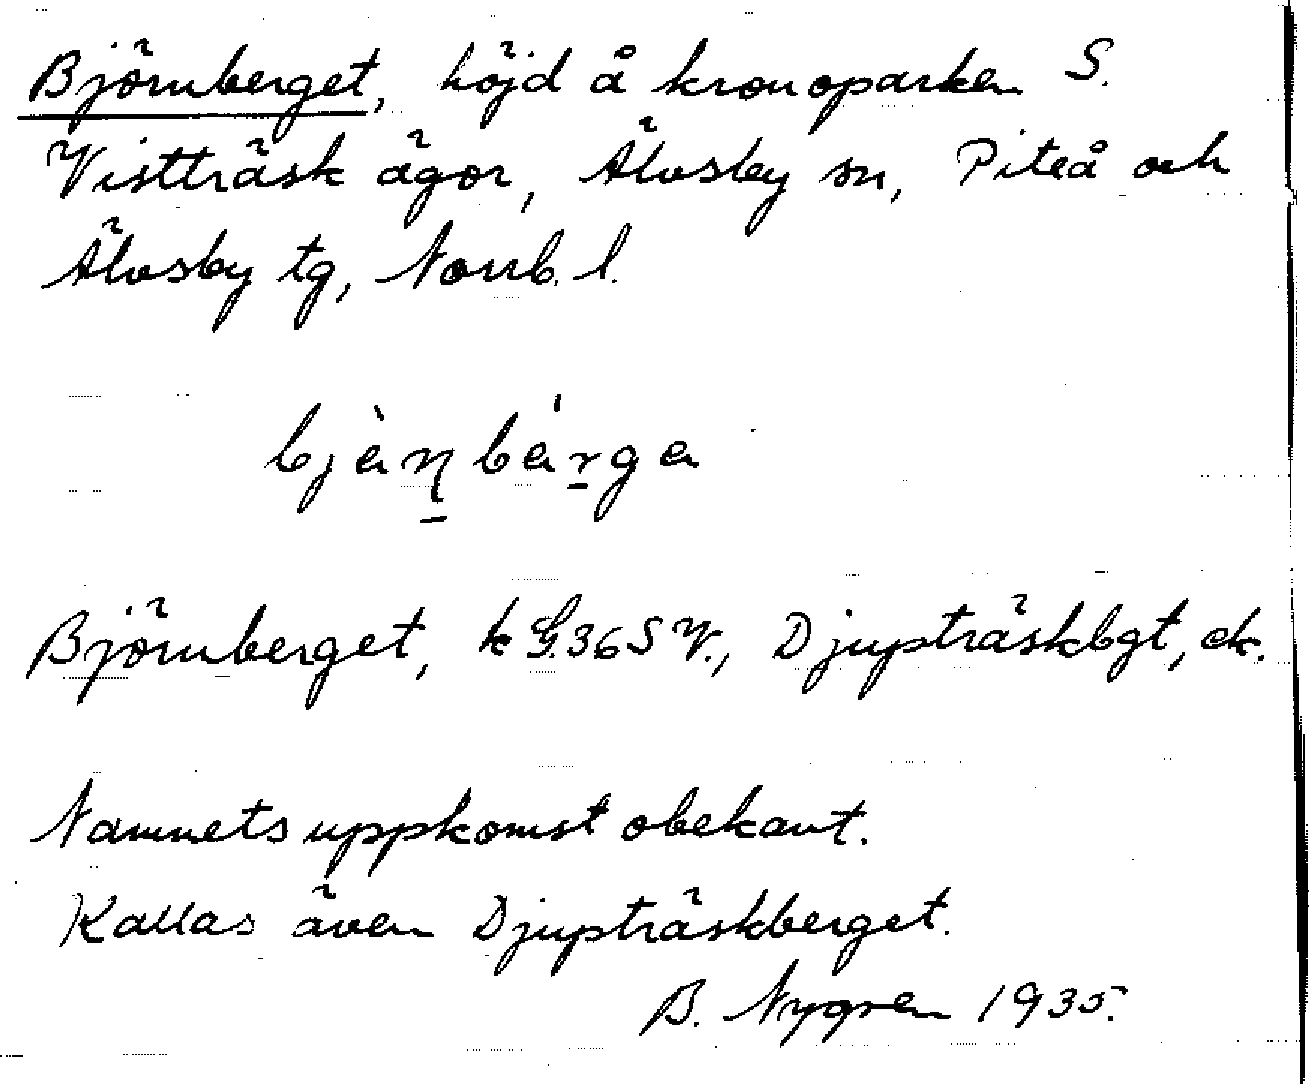 Björnberget, höjd å kronoparken S.
Vistträsk ägor, Älvsby sn, Piteå och
Älvsby tg, Norrb. l.
bjànbárga
Björnberget, k G.36 S V., Djupträskbgt, ek.
Namnets uppkomst obekant.
Kallas även Djupträskberget.
B. Nygren 1935.